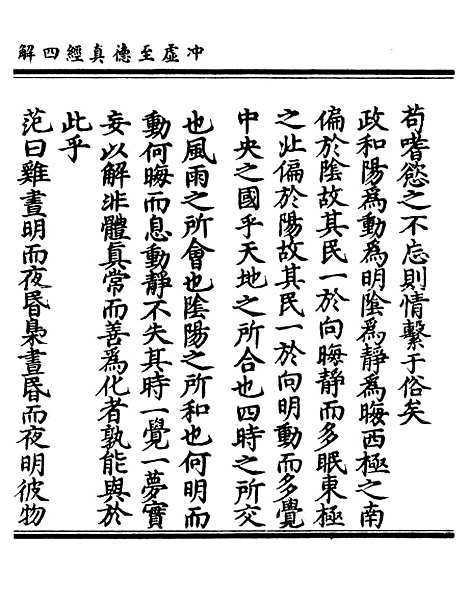 冲虛至德真經四解
苟嗜慾之不忘則情繫于俗矣
政和陽爲動爲明陰爲靜爲晦西極之南
偏於陰故其民一於向晦靜而多眠東極
之北偏於陽故其民一於向明動而多覺
中央之國乎天地之所合也四時之所交
也風雨之所會也陰陽之所和也何明而
動何晦而息動靜不失其時一覺一夢實
妄以解非體真常而善爲化者孰能與於
此乎
范曰雞晝明而夜昬梟晝昬而夜明彼物